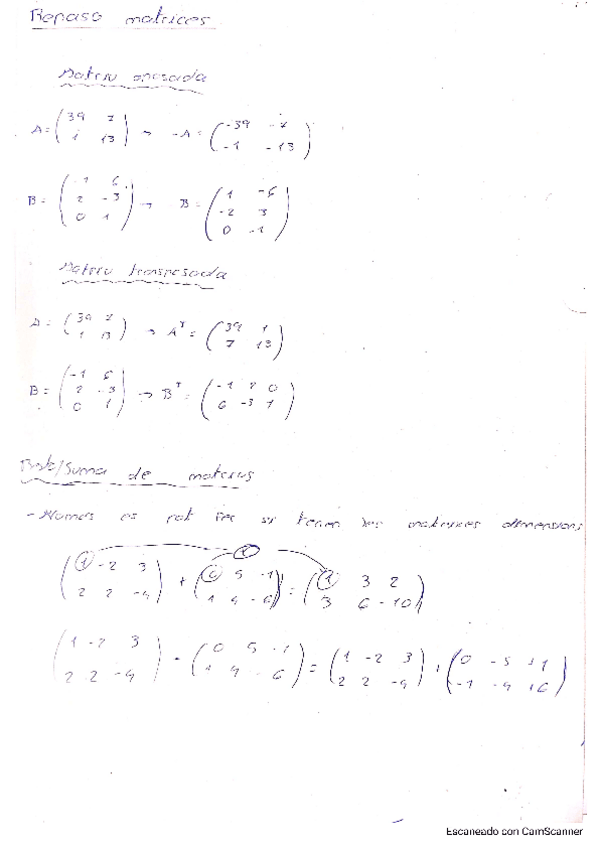 Repaso matrices
Matriu oposada
A = (39 7 / 1 13) → -A = (-39 -7 / -1 -13)
B = (-1 6 / 2 -3 / 0 1) → B = (1 -6 / -2 3 / 0 -1)
Matriu transposada
A = (39 7 / 1 13) → A^T = (39 1 / 7 13)
B = (-1 6 / 2 -3 / 0 1) → B^T = (-1 2 0 / 6 -3 1)
/Suma de matrius
- Només es pot fer si tenen les mateixes dimensions
(1 -2 3 / 2 2 -4) + (0 5 -1 / 1 4 -6) = (1 3 2 / 3 6 -10)
(1 -2 3 / 2 2 -4) - (0 5 -1 / 1 4 -6) = (1 -2 3 / 2 2 -4) + (0 -5 +1 / -1 -4 +6)
Escaneado con CamScanner